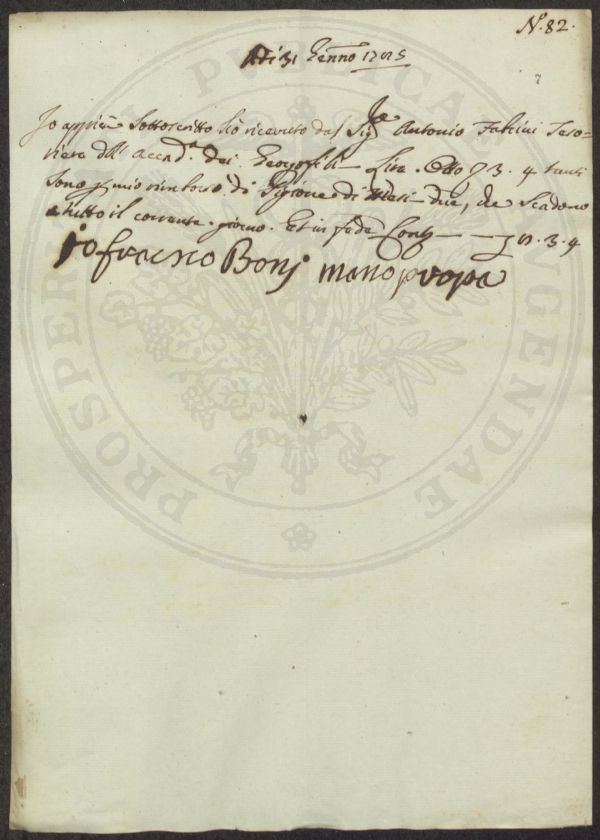 N.° 82.
Adi 31 Genno 1785
Io appiè Sottoscritto hò ricevuto dal Sigre Antonio Fabrini Teso-
riere dell' Accad.a dei Georgofili Lire Otto 3. 4 tanti
sono p mio rimborso di Pigione di Mesi due, che Scadono
a tutto il corrente giorno. Et in fede Contz — £ 8. 3. 4
io francesco Bonj mano propa
PROSPERITATI PUBLICAE AUGENDAE